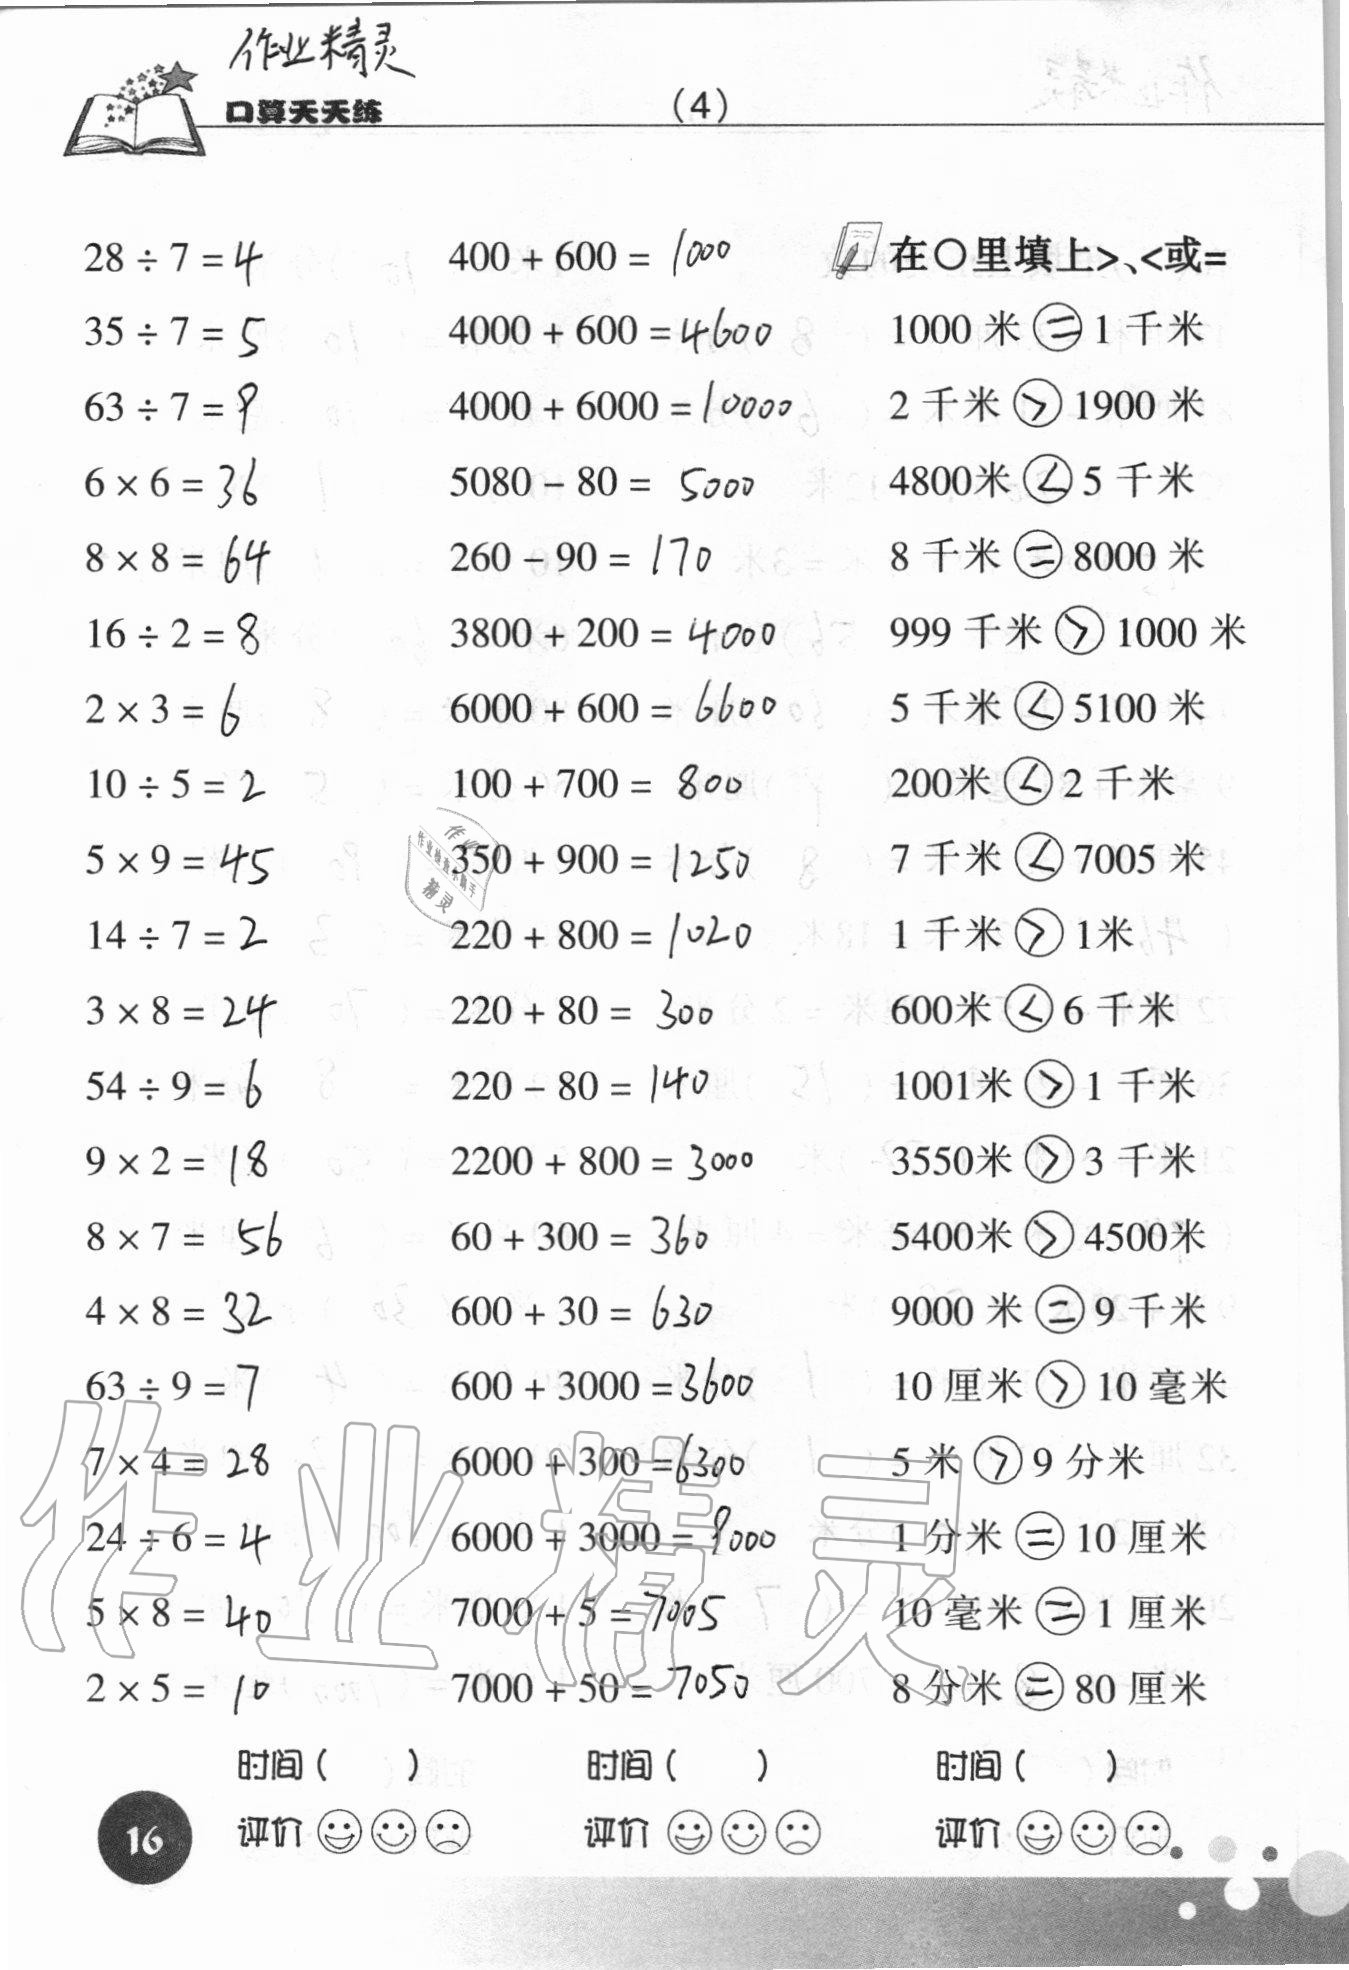 作业精灵
口算天天练
(4)
28÷7=4
35÷7=5
63÷7=9
6×6=36
8×8=64
16÷2=8
2×3=6
10÷5=2
5×9=45
14÷7=2
3×8=24
54÷9=6
9×2=18
8×7=56
4×8=32
63÷9=7
7×4=28
24÷6=4
5×8=40
2×5=10
时间( )
评价
400+600=1000
4000+600=4600
4000+6000=10000
5080-80=5000
260-90=170
3800+200=4000
6000+600=6600
100+700=800
350+900=1250
220+800=1020
220+80=300
220-80=140
2200+800=3000
60+300=360
600+30=630
600+3000=3600
6000+300=6300
6000+3000=9000
7000+5=7005
7000+50=7050
时间( )
评价
在○里填上>、<或=
1000 米 = 1 千米
2 千米 > 1900 米
4800米 < 5 千米
8 千米 = 8000 米
999 千米 > 1000 米
5 千米 < 5100 米
200米 < 2 千米
7 千米 < 7005 米
1 千米 > 1米
600米 < 6 千米
1001米 > 1 千米
3550米 > 3 千米
5400米 > 4500米
9000 米 = 9 千米
10 厘米 > 10 毫米
5 米 > 9 分米
1 分米 = 10 厘米
10 毫米 = 1 厘米
8 分米 = 80 厘米
时间( )
评价
16
作业精灵